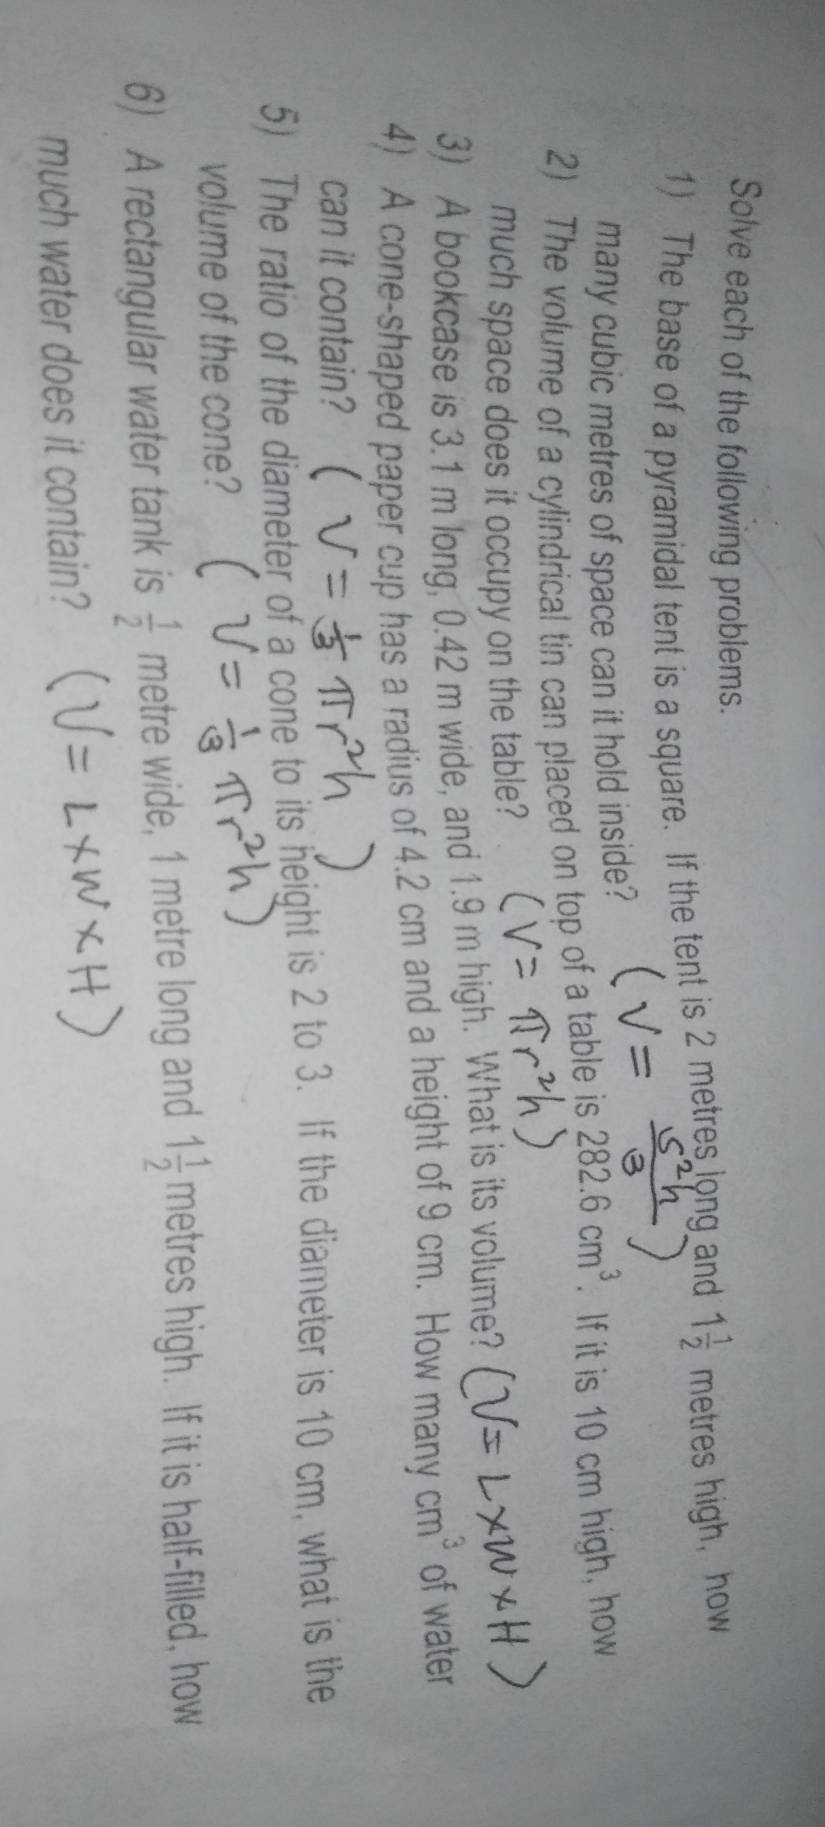 Solve each of the following problems.
1) The base of a pyramidal tent is a square. If the tent is 2 metres long and 1 1/2 metres high, how
many cubic metres of space can it hold inside? (V = s²h/3)
2) The volume of a cylindrical tin can placed on top of a table is 282.6 cm³. If it is 10 cm high, how
much space does it occupy on the table? (V = πr²h)
3) A bookcase is 3.1 m long, 0.42 m wide, and 1.9 m high. What is its volume? (V = L x W x H)
4) A cone-shaped paper cup has a radius of 4.2 cm and a height of 9 cm. How many cm³ of water
can it contain? (V = 1/3 πr²h)
5) The ratio of the diameter of a cone to its height is 2 to 3. If the diameter is 10 cm, what is the
volume of the cone? (V = 1/3 πr²h)
6) A rectangular water tank is 1/2 metre wide, 1 metre long and 1 1/2 metres high. If it is half-filled, how
much water does it contain? (V = L x W x H)